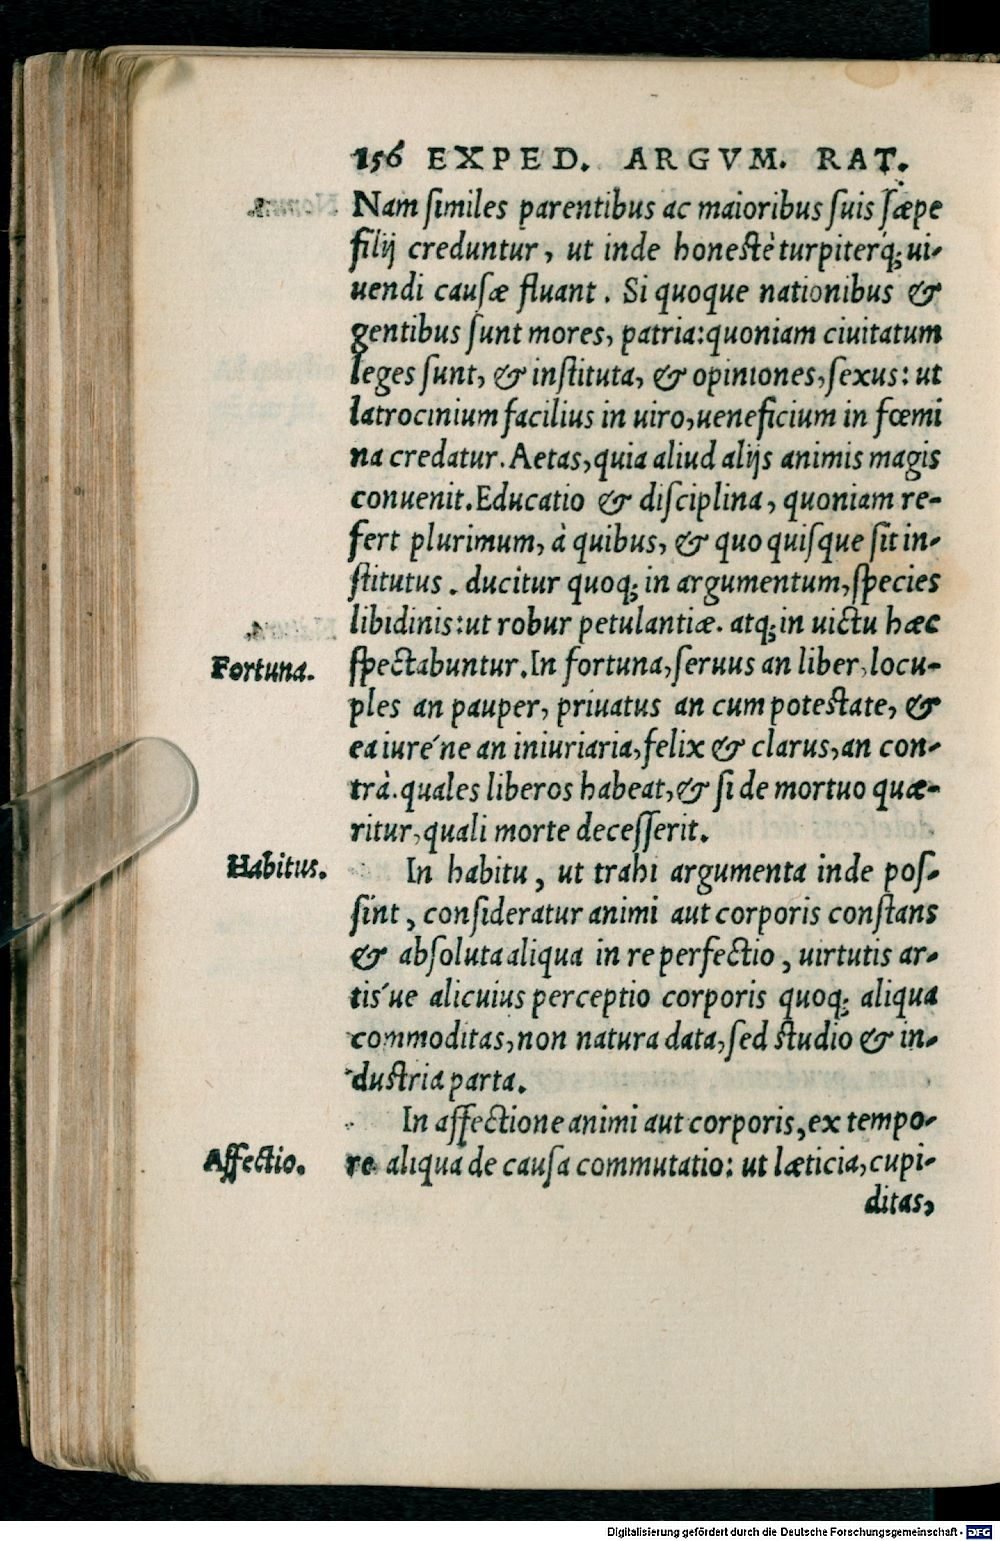 156 EXPED. ARGVM. RAT.
Nam ſimiles parentibus ac maioribus ſuis ſæpe
filij creduntur, ut inde honeſtè turpiterq́; ui-
uendi cauſæ fluant. Si quoque nationibus &
gentibus ſunt mores, patria: quoniam ciuitatum
leges ſunt, & inſtituta, & opiniones, ſexus: ut
latrocinium facilius in uiro, ueneficium in fœmi
na credatur. Aetas, quia aliud alijs animis magis
conuenit. Educatio & diſciplina, quoniam re-
fert plurimum, à quibus, & quo quiſque ſit in-
ſtitutus. ducitur quoq; in argumentum, ſpecies
libidinis: ut robur petulantiæ. atq; in uictu hæc
Fortuna.
ſpectabuntur. In fortuna, ſeruus an liber, locu-
ples an pauper, priuatus an cum poteſtate, &
ea iure´ne an iniuriaria, felix & clarus, an con-
trà. quales liberos habeat, & ſi de mortuo quæ-
ritur, quali morte deceſſerit.
Habitus.
In habitu, ut trahi argumenta inde poſ-
ſint, conſideratur animi aut corporis conſtans
& abſoluta aliqua in re perfectio, uirtutis ar-
tis´ue alicuius perceptio corporis quoq; aliqua
commoditas, non natura data, ſed ſtudio & in-
duſtria parta.
In affectione animi aut corporis, ex tempo-
Affectio.
re aliqua de cauſa commutatio: ut læticia, cupi-
ditas,
Digitalisierung gefördert durch die Deutsche Forschungsgemeinschaft - DFG